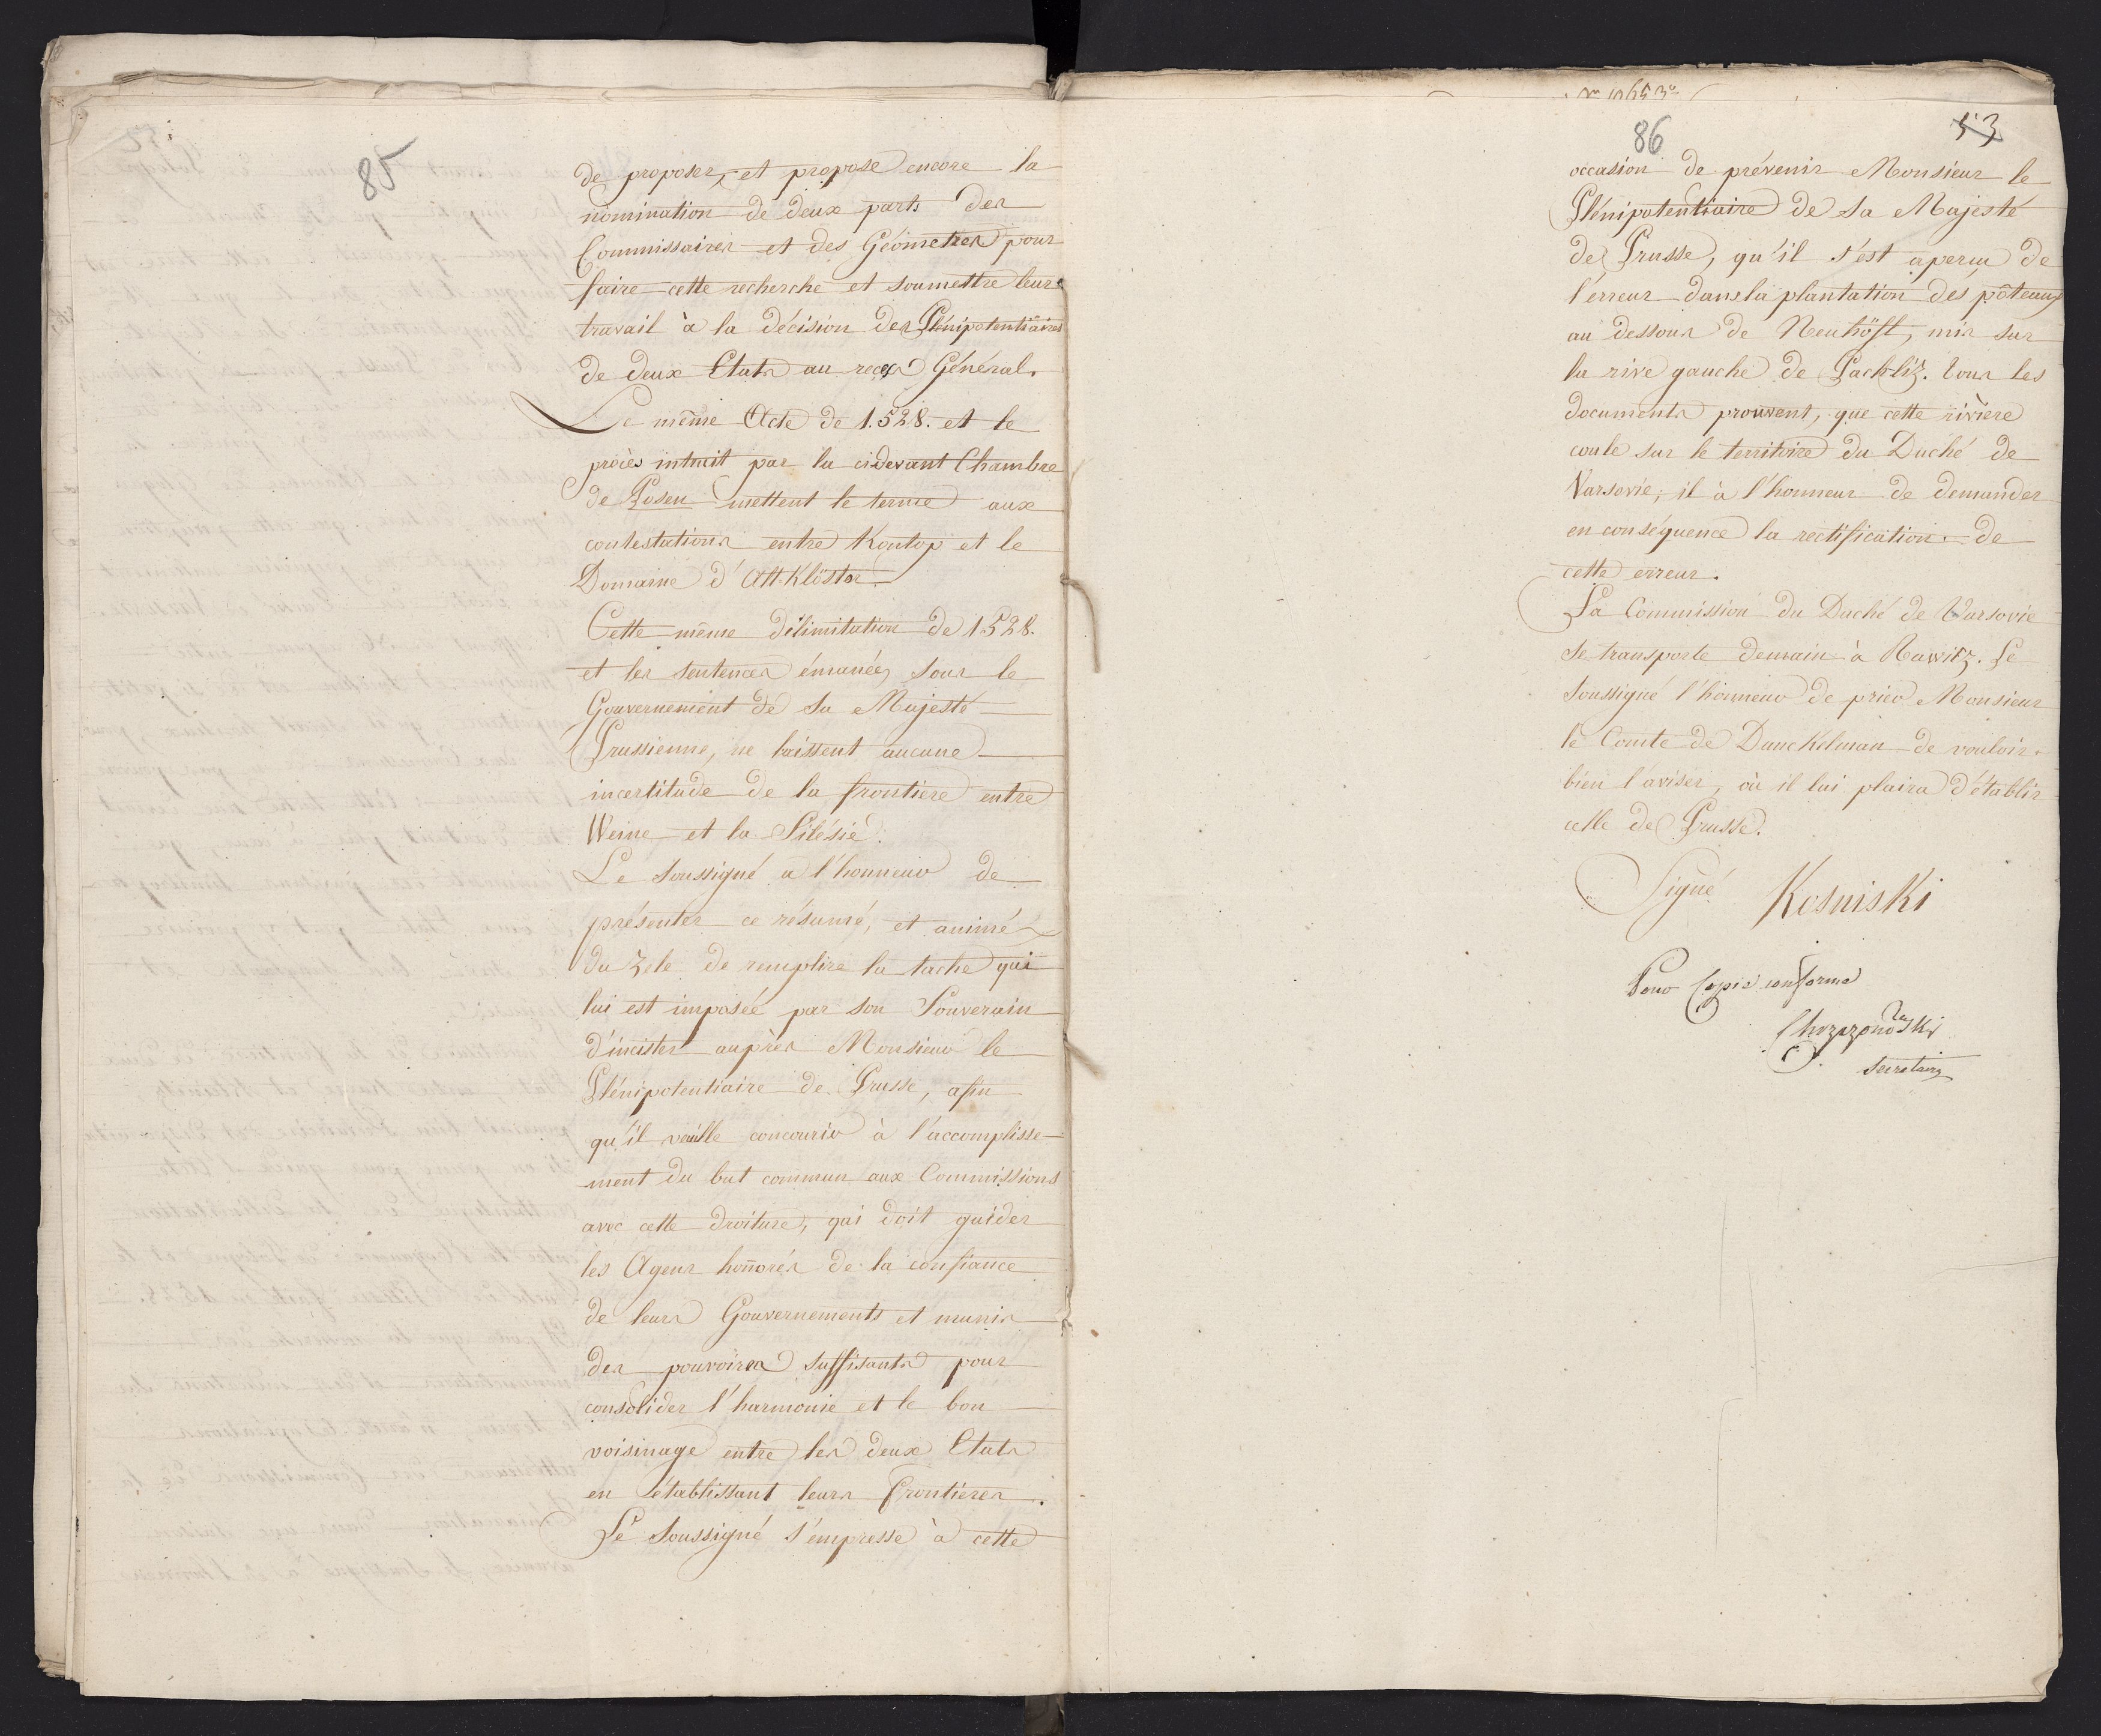 85
de proposer, et propose encore la
nomination de deux parts des
Commissaires et des Géometres pour
faire cette recherche et soumettre leurs
travail à la décision des Plénipotentiaires
de deux Etats au recex Général.
Le même Acte de 1.528. et le
procès intruit par la cidevant Chambre
de Posen mettent le terme aux
contestations entre Kontop et le
Domaine d'Att-Klöster.
Cette même délimitation de 1528.
et les sentences émanées sous le
Gouvernement de Sa Majesté
Prussienne, ne laissent aucune
incertitude de la frontiere entre
Weine et la Silésie.
Le Soussigné a l'honneur de
présenter ce résumé, et animé
du zele de remplire la tache qui
lui est imposée par son Souverain
d'incister auprès Monsieur le
Plénipotentiaire de Prusse, afin
qu'il veuille concourir à l'accomplisse-
ment du but commun aux Commissions
avec cette droiture, qui doit guider
les Agens honnorés de la confiance
de leurs Gouvernements et munis
des pouvoires suffisants pour
consolider l'harmonie et le bon
voisinage entre les deux Etats
en établissant leurs Frontières.
Le Soussigné s'empresse à cette
86
53
occasion de prévenir Monsieur le
Plénipotentiaire de Sa Majesté
de Prusse, qu'il s'est aperçu de
l'erreur dans la plantation des pôteaux
au dessous de Neuhöff, mis sur
la rive gauche de Pachliz. Tous les
documents prouvent, que cette rivière
coule sur le territoire du Duché de
Varsovie; il à l'honneur de demander
en conséquence la rectification de
cette erreur.
La Commission du Duché de Varsovie
se transporte demain à Rawitz. Le
Soussigné l'honneur de prier Monsieur
le Comte de Danckelman de vouloir
bien l'aviser, où il lui plaira d'établir
celle de Prusse.
Signé Kosniski
Pour Copie conforme
Secretaire